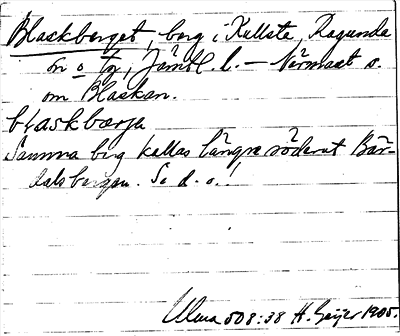 Blaskberget, berg i Kullsta, Ragunda
sn o tg, Jämtl. l. – Närmast s.
om Blaskan.
blaskbærje
Samma berg kallas längre söderut Bär-
dalsbergen. Se d. o.!
Ulma 508:38 H. Geijer 1905.